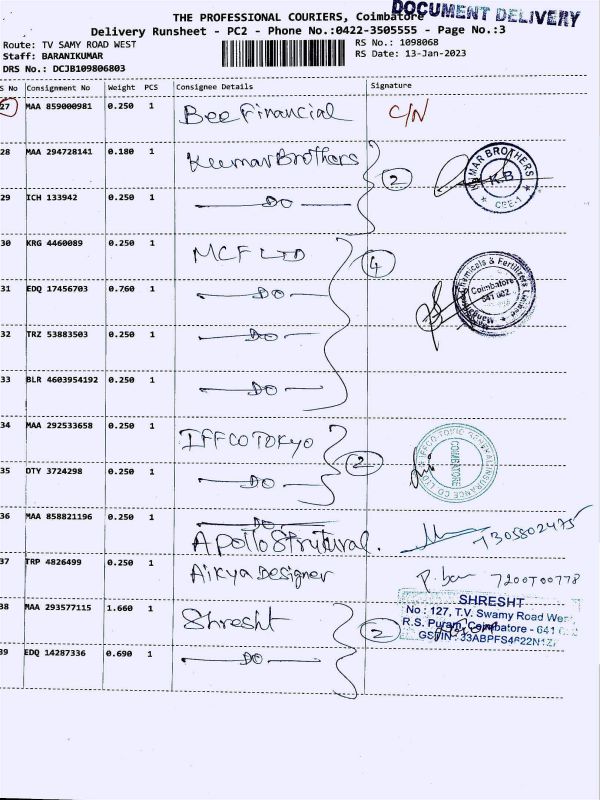 THE PROFESSIONAL COURIERS, Coimbatore
DOCUMENT DELIVERY
Delivery Runsheet - PC2 - Phone No.:0422-3505555 - Page No.:3
Route: TV SAMY ROAD WEST
RS No.: 1098068
Staff: BARANIKUMAR
RS Date: 13-Jan-2023
DRS No.: DCJB109806803
S No Consignment No Weight PCS Consignee Details Signature
27 MAA 859000981 0.250 1 Bee Financial C/N
28 MAA 294728141 0.180 1 Kumar Brothers
29 ICH 133942 0.250 1 DO
2
KUMAR BROTHERS
K.B
CBE-1
30 KRG 4460089 0.250 1 MCF LTD
31 EDQ 17456703 0.760 1 DO
32 TRZ 53883503 0.250 1 DO
33 BLR 4603954192 0.250 1 DO
4
Chemicals & Fertilizers Limited
Coimbatore
641 002
34 MAA 292533658 0.250 1 IFFCO TOKYO
35 DTY 3724298 0.250 1 DO
2
IFFCO-TOKIO GENERAL INSURANCE CO. LTD.
COIMBATORE
36 MAA 858821196 0.250 1 DO
Apollo Strutural.
37 TRP 4826499 0.250 1 Aikya Designer
7200700778
38 MAA 293577115 1.660 1 Shresht
39 EDQ 14287336 0.690 1 DO
2
SHRESHT
No : 127, T.V. Swamy Road Wes
R.S. Puram, Coimbatore - 641
GSTIN : 33ABPFS4622N1Z